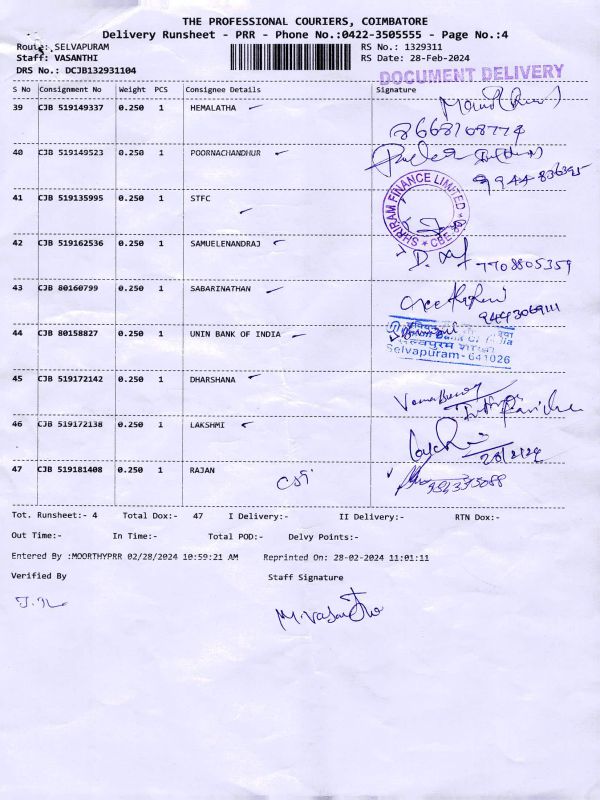 THE PROFESSIONAL COURIERS, COIMBATORE
Delivery Runsheet - PRR - Phone No.:0422-3505555 - Page No.:4
Route: SELVAPURAM
Staff: VASANTHI
DRS No.: DCJB132931104
RS No.: 1329311
RS Date: 28-Feb-2024
DOCUMENT DELIVERY
S No Consignment No Weight PCS Consignee Details Signature
39 CJB 519149337 0.250 1 HEMALATHA
8668108774
40 CJB 519149523 0.250 1 POORNACHANDHUR
9944836395
41 CJB 519135995 0.250 1 STFC
SHRIRAM FINANCE LIMITED
42 CJB 519162536 0.250 1 SAMUELENANDRAJ
7708805359
43 CJB 80160799 0.250 1 SABARINATHAN
44 CJB 80158827 0.250 1 UNIN BANK OF INDIA
Selvapuram - 641026
45 CJB 519172142 0.250 1 DHARSHANA
46 CJB 519172138 0.250 1 LAKSHMI
28/2/24
47 CJB 519181408 0.250 1 RAJAN
Tot. Runsheet:- 4 Total Dox:- 47 I Delivery:- II Delivery:- RTN Dox:-
Out Time:- In Time:- Total POD:- Delvy Points:-
Entered By :MOORTHYPRR 02/28/2024 10:59:21 AM Reprinted On: 28-02-2024 11:01:11
Verified By Staff Signature
M.Vasantha